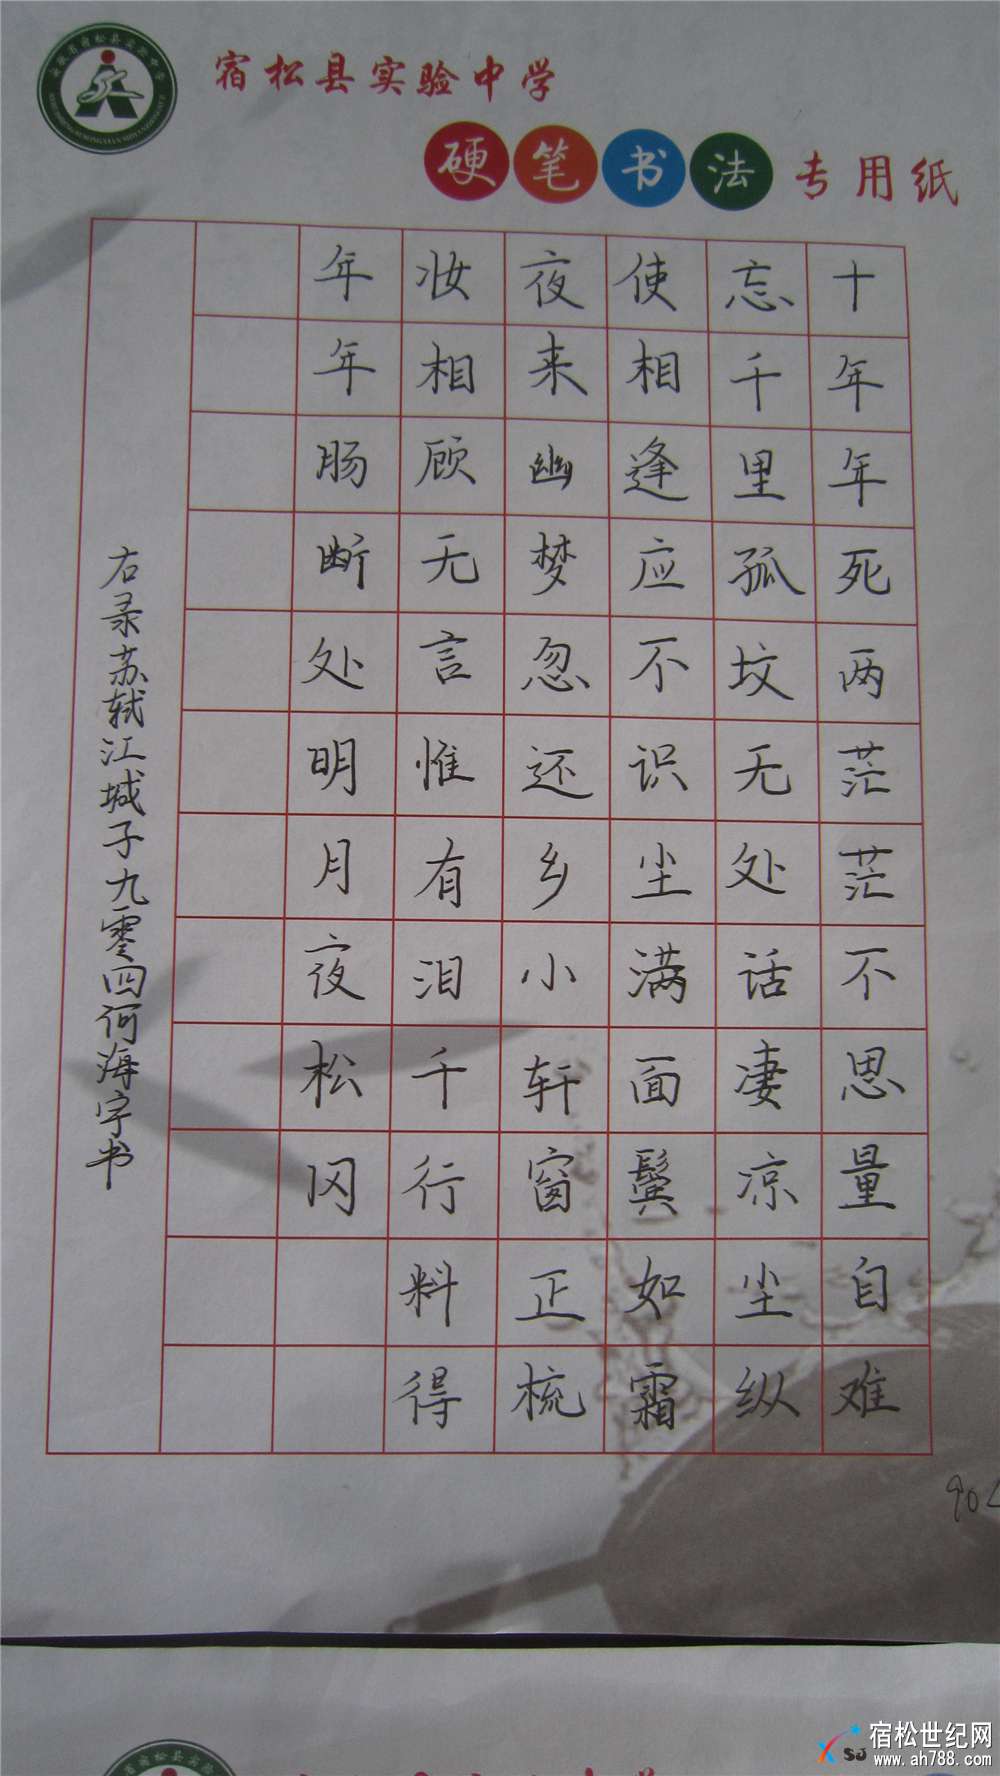 安徽省宿松县实验中学
宿松县实验中学
硬笔书法专用纸
十年年死两茫茫不思量自难
忘千里孤坟无处话凄凉尘纵
使相逢应不识尘满面鬓如霜
夜来幽梦忽还乡小轩窗正梳
妆相顾无言惟有泪千行料得
年年肠断处明月夜松冈
右录苏轼江城子九零四何海宇书
904
宿松世纪网
www.ah788.com